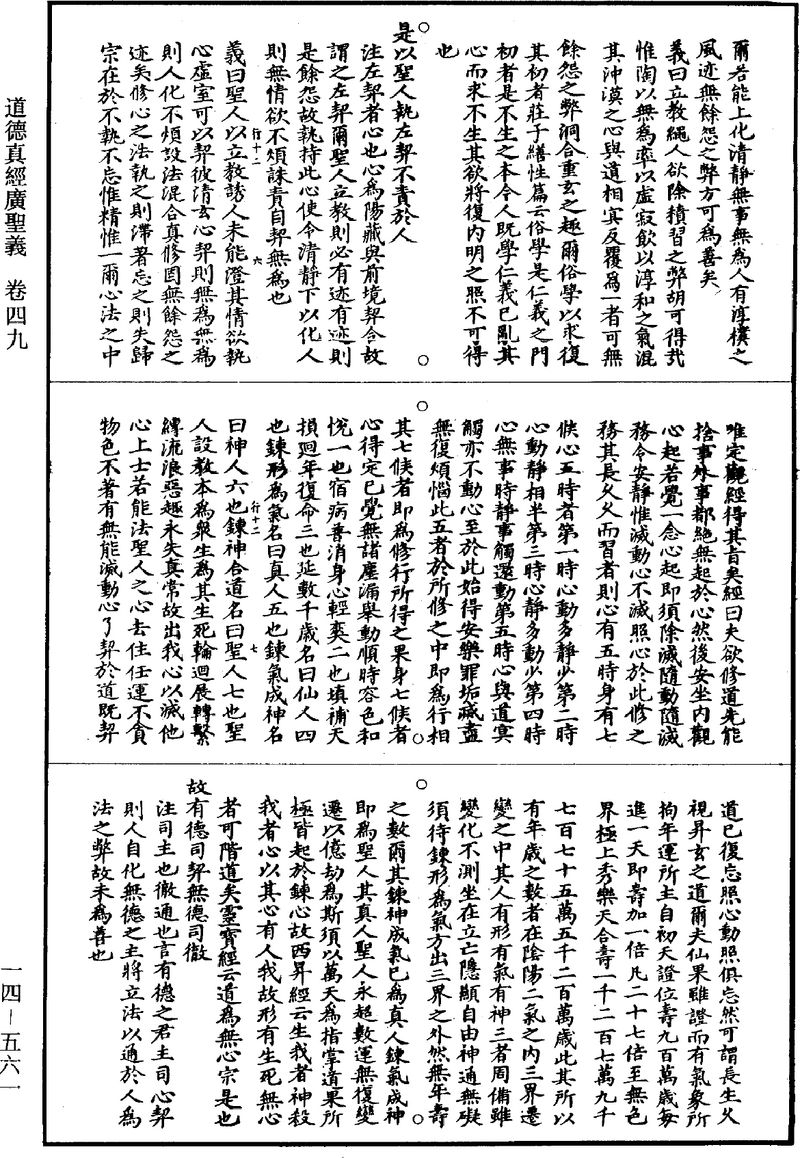 道德真經廣聖義　卷四九
一四－五六一
爾若能上化清靜無事無為人有淳樸之
風迹無餘怨之弊方可為善矣
義曰立教繩人欲除積習之弊胡可得哉
惟陶以無為率以虛寂飲以淳和之氣混
其沖漠之心與道相宾反覆為一者可無
餘怨之弊洞合重玄之趣爾俗學以求復
其初者莊子繕性篇云俗學是仁義之門
初者是不生之本令人既學仁義已亂其
心而求不生其欲將復內明之照不可得
也
是以聖人執左契不責於人
注左契者心也心為陽藏與前境契合故
謂之左契爾聖人立教則必有迹有迹則
是餘怨故執持此心使令清靜下以化人
則無情欲不煩誅責自契無為也
行十二
六
義曰聖人以立教誘人未能澄其情欲執
心虛室可以契彼清玄心契則無為無為
則人化不煩故法混合真修固無餘怨之
迹矣修心之法執之則滯著忘之則失歸
宗在於不執不忘惟精惟一爾心法之中
唯定觀經得其旨矣經曰夫欲修道先能
捨事外事都絕無起於心然後安坐內觀
心起若覺一念心起即須除滅隨動隨滅
務令安靜惟滅動心不滅照心於此修之
務其長久久而習者則心有五時身有七
候心五時者第一時心動多靜少第二時
心動靜相半第三時心靜多動少第四時
心無事時靜事觸還動第五時心與道冥
觸亦不動心至於此始得安樂罪垢滅盡
無復煩惱此五者於所修之中即為行相
其七候者即為修行所得之果身七候者
心得定已覺無諸塵漏舉動順時容色和
悅一也宿病善消身心輕爽二也填補天
損迴年復命三也延數千歲名曰仙人四
也鍊形為氣名曰真人五也鍊氣成神名
行十二
七
曰神人六也鍊神合道名曰聖人七也聖
人設教本為眾生為其生死輪迴展轉繫
縛流浪惡趣永失真常故出我心以滅他
心上士若能法聖人之心去住任運不貪
物色不著有無能滅動心了契於道既契
道已復忘照心動照俱忘然可謂長生久
視昇玄之道爾夫仙果雖證而有氣象所
拘年運所主自初天證位壽九百萬歲每
進一天即壽加一倍凡二十七倍至無色
界極上秀樂天合壽一千二百七萬九千
七百七十五萬五千二百萬歲此其所以
有年歲之數者在陰陽二氣之內三界遷
變之中其人有形有氣有神三者周備雖
變化不測坐在立亡隱顯自由神通無礙
須待鍊形為氣方出三界之外然無年壽
之數爾其鍊神成氣已為真人鍊氣成神
即為聖人其真人聖人永超數運無復變
遷以億劫為斯須以萬天為指掌道果所
極皆起於鍊心故西昇經云生我者神殺
我者心以其心有人我故形有生死無心
者可階道矣靈寶經云道為無心宗是也
故有德司契無德司徹
注司主也徹通也言有德之君主司心契
則人自化無德之主將立法以通於人為
法之弊故未為善也